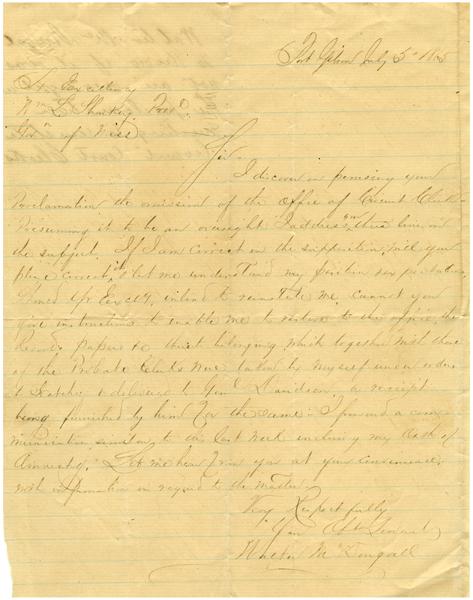 Port Gibson July 5th 1865
His Excellency
Wm L Sharkey Prov.
Govr of Miss
Sir
I discover on perusing your
Proclamation the omission of the office of Circuit Clerk
Presuming it to be an oversight I address you these lines on
the subject. If I am correct in the supposition, will you
please correct it, & let me understand my position
Excy, intend to reinstate me, cannot you
give instructions to enable me to restore to the office, the
Records Papers &c thereto belonging, which together with those
of the Probate Clerks were taken by myself under orders
at Natchez & delivered to Genl Davidson, a receipt
being furnished by him for the same - I forward a commu-
nication similar to this last week inclosing my Oath of
Amnesty. Let me hear from you at your convenience,
with information in regard to the matter
Very Respectfully
Your Obt Servant
Walter McDougall